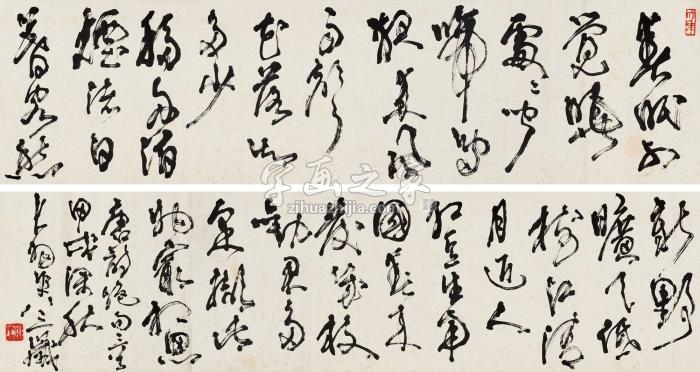 春眠不
覺曉
處〻聞
啼鳥
夜來風
雨聲
花落知
多少
移舟泊
煙渚日
暮客愁
新野
曠天低
樹江清
月近人
紅豆生南
國春來
發幾枝
勸君多
采擷此
物最相思
唐詩絕句三首
甲戌深秋
字画之家
zihuazhijia.com